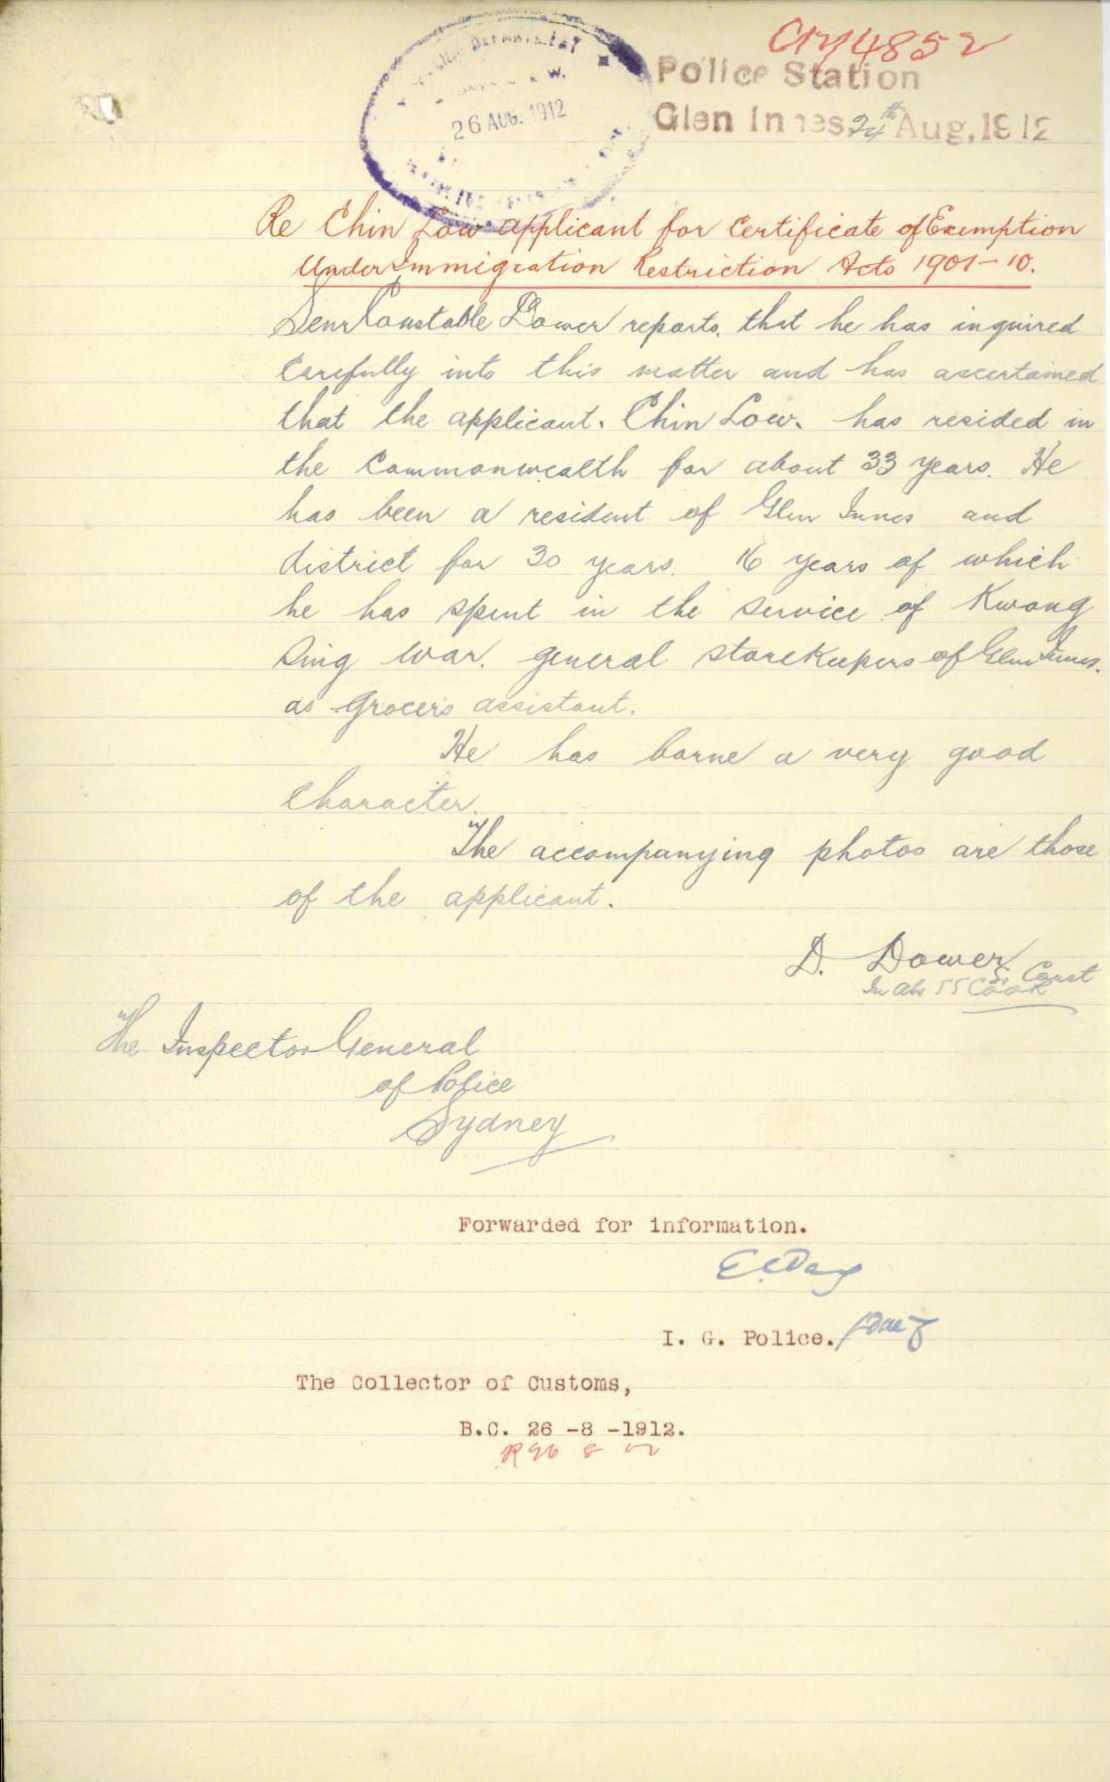 C12/4852
Police Station
Glen Innes 24th Aug. 1912
26 AUG. 1912
Re Chin Low applicant for Certificate of Exemption
Under Immigration Restriction Acts 1901-10.
Senr Constable Dower reports, that he has inquired
carefully into this matter and has ascertained
that the applicant. Chin Low. has resided in
the Commonwealth for about 33 years. He
has been a resident of Glen Innes and
district for 30 years. 16 years of which
he has spent in the service of Kwong
Sing War. general storekeepers of Glen Innes.
as grocers assistant.
He has borne a very good
character.
The accompanying photos are those
of the applicant.
D. Dower
S. Const
In abs SS Cook
The Inspector General
of Police
Sydney
Forwarded for information.
E. Day
I. G. Police.
The Collector of Customs,
B.C. 26 -8 -1912.